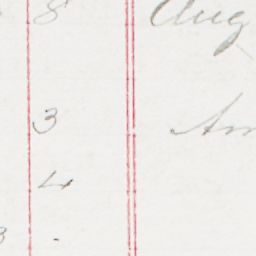 8 Aug
3 Am
4
3 -